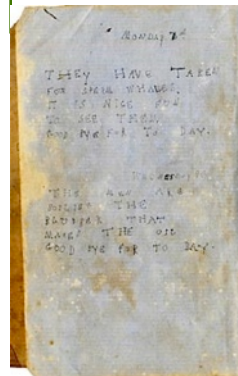 MONDAY
THEY HAVE TAKEN
FOR SPERM WHALES.
IT IS NICE FUN
TO SEE THEM.
GOOD BYE FOR TO DAY.
THE MEN ARE
BOILING THE
BLUBBER THAT
MAKES THE OIL
GOOD BYE FOR TO DAY.